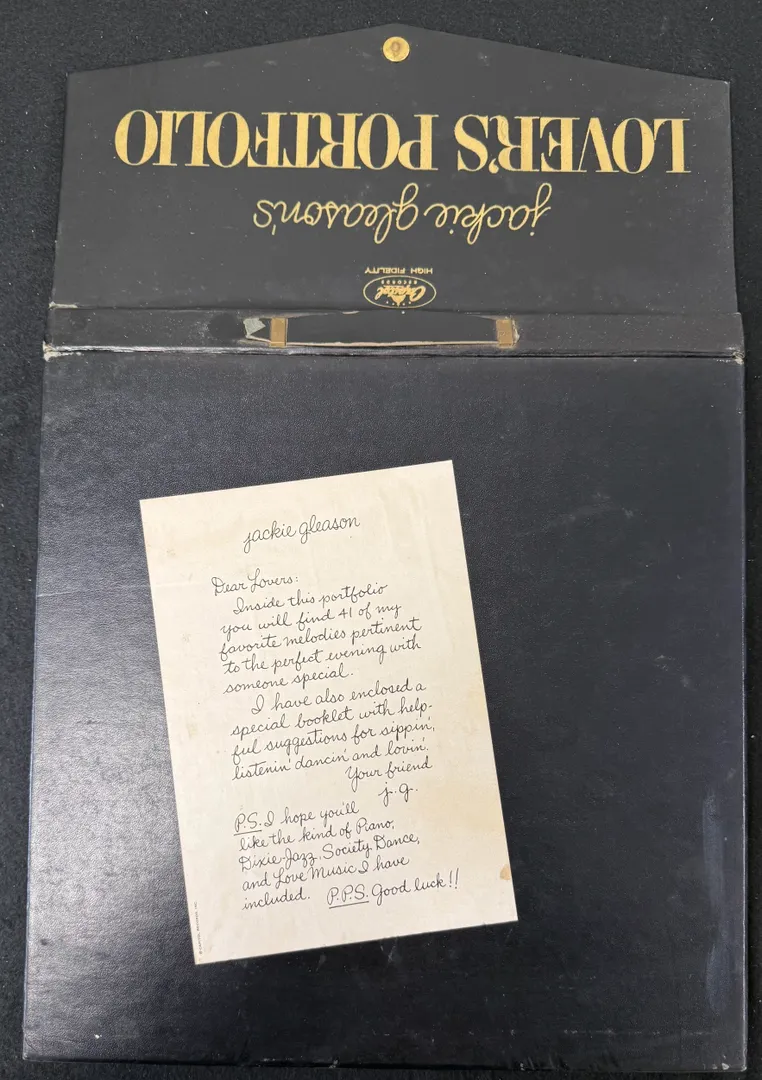 LOVER'S PORTFOLIO
jackie gleason's
Capitol
RECORDS
HIGH FIDELITY
jackie gleason
Dear Lovers:
Inside this portfolio
you will find 41 of my
favorite melodies pertinent
to the perfect evening with
someone special.
I have also enclosed a
special booklet with help-
ful suggestions for sippin',
listenin' dancin' and lovin'.
Your friend
j.g.
P.S. I hope you'll
like the kind of Piano,
Dixie-Jazz, Society Dance,
and Love Music I have
included. P.P.S. Good luck!!
© CAPITOL RECORDS, INC.